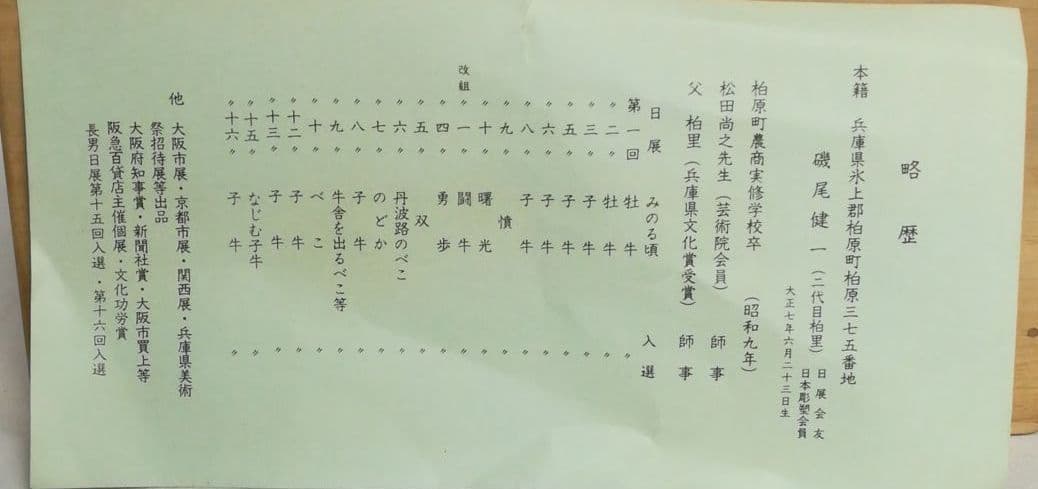 略歴
本籍 兵庫県氷上郡柏原町柏原三七五番地
磯尾健一(二代目柏里)日展会友
日本彫塑会員
大正七年六月二十三日生
柏原町農商実修学校卒(昭和九年)
松田尚之先生(芸術院会員)師事
父 柏里(兵庫県文化賞受賞)師事
日展 みのる頃 入選
第一回 牡牛 〃
〃二〃 牡牛 〃
〃三〃 子牛 〃
〃五〃 子牛 〃
〃六〃 子牛 〃
〃八〃 子牛 〃
〃九〃 憤 〃
〃十〃 曙光 〃
改組〃一〃 闘牛 〃
〃四〃 勇歩 〃
〃五〃 双 〃
〃六〃 丹波路のべこ 〃
〃七〃 のどか 〃
〃八〃 子牛 〃
〃九〃 牛舎を出るべこ等 〃
〃十〃 べこ 〃
〃十二〃 子牛 〃
〃十三〃 子牛 〃
〃十五〃 なじむ子牛 〃
〃十六〃 子牛 〃
他 大阪市展・京都市展・関西展・兵庫県美術
祭招待展等出品
大阪府知事賞・新聞社賞・大阪市買上等
阪急百貨店主催個展・文化功労賞
長男日展第十五回入選・第十六回入選